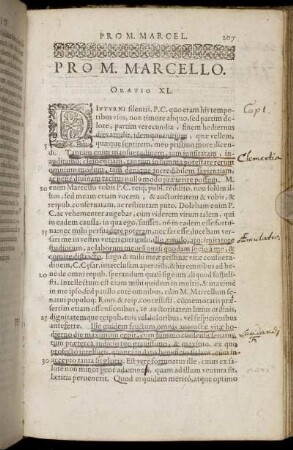 PRO M. MARCEL.
207
PRO M. MARCELLO.
ORATIO XI.
DIVTVRNI silentii, P.C. quo eram his tempo-
ribus vsus, non timore aliquo, sed partim do-
lore, partim verecundia, finem hodiernus
dies attulit, idemque initium, quæ vellem,
quæque sentirem, meo pristino more dicen-
di. Tantam enim mansuetudinem, tam inusitatam,
inauditamque clementiam, tantum in summa potestate rerum
omnium modum, tam denique incredibilem sapientiam,
ac pene diuinam tacitus nullo modo præterire possum. M.
enim Marcello vobis P.C. reiq. publ. reddito, non solum il-
lius, sed meam etiam vocem, & auctoritatem & vobis, &
reip. conseruatam, ac restitutam puto. Dolebam enim P.
C. ac vehementer angebar, cum viderem virum talem, qui
in eadem caussa, in qua ego, fuisset, non in eadem esse fortuna:
nec mihi persuadere poteram, nec fas esse ducebam versari
me in nostro veteri curriculo, illo æmulo, atque imitatore
studiorum, ac laborum meorum, quasi quodam socio a me,
& comite distracto. Ergo & mihi meæ pristinæ vitæ consuetu-
dinem, C. Cæsar, interclusam aperuisti, & his omnibus ad be-
ne de omni repub. sperandum quasi signum aliquod sustulisti.
Intellectum est enim mihi quidem in multis, & maxime
in me ipso, sed paullo ante omnibus, cum M. Marcellum se-
natui populoq. Rom. & reip. concessisti, commemoratis præ-
sertim etiam offensionibus, te auctoritatem huius ordinis,
dignitatemque reipub. tuis vel doloribus, vel suspicionibus
anteferre. Ille quidem fructum omnis anteactæ vitæ hodier-
no die maximum cepit, cum summo consensu senatus, tum
præterea iudicio tuo grauissimo, & maximo. ex quo
profecto intelligis, quanta in dato beneficio sit laus, cum in
accepto tanta sit gloria. Est vero fortunatus ille, cuius ex sa-
lute non minor pæne ad omnes, quam ad illum ventura sit,
lætitia peruenerit. Quod ei quidem merito, atque optimo
Clementia